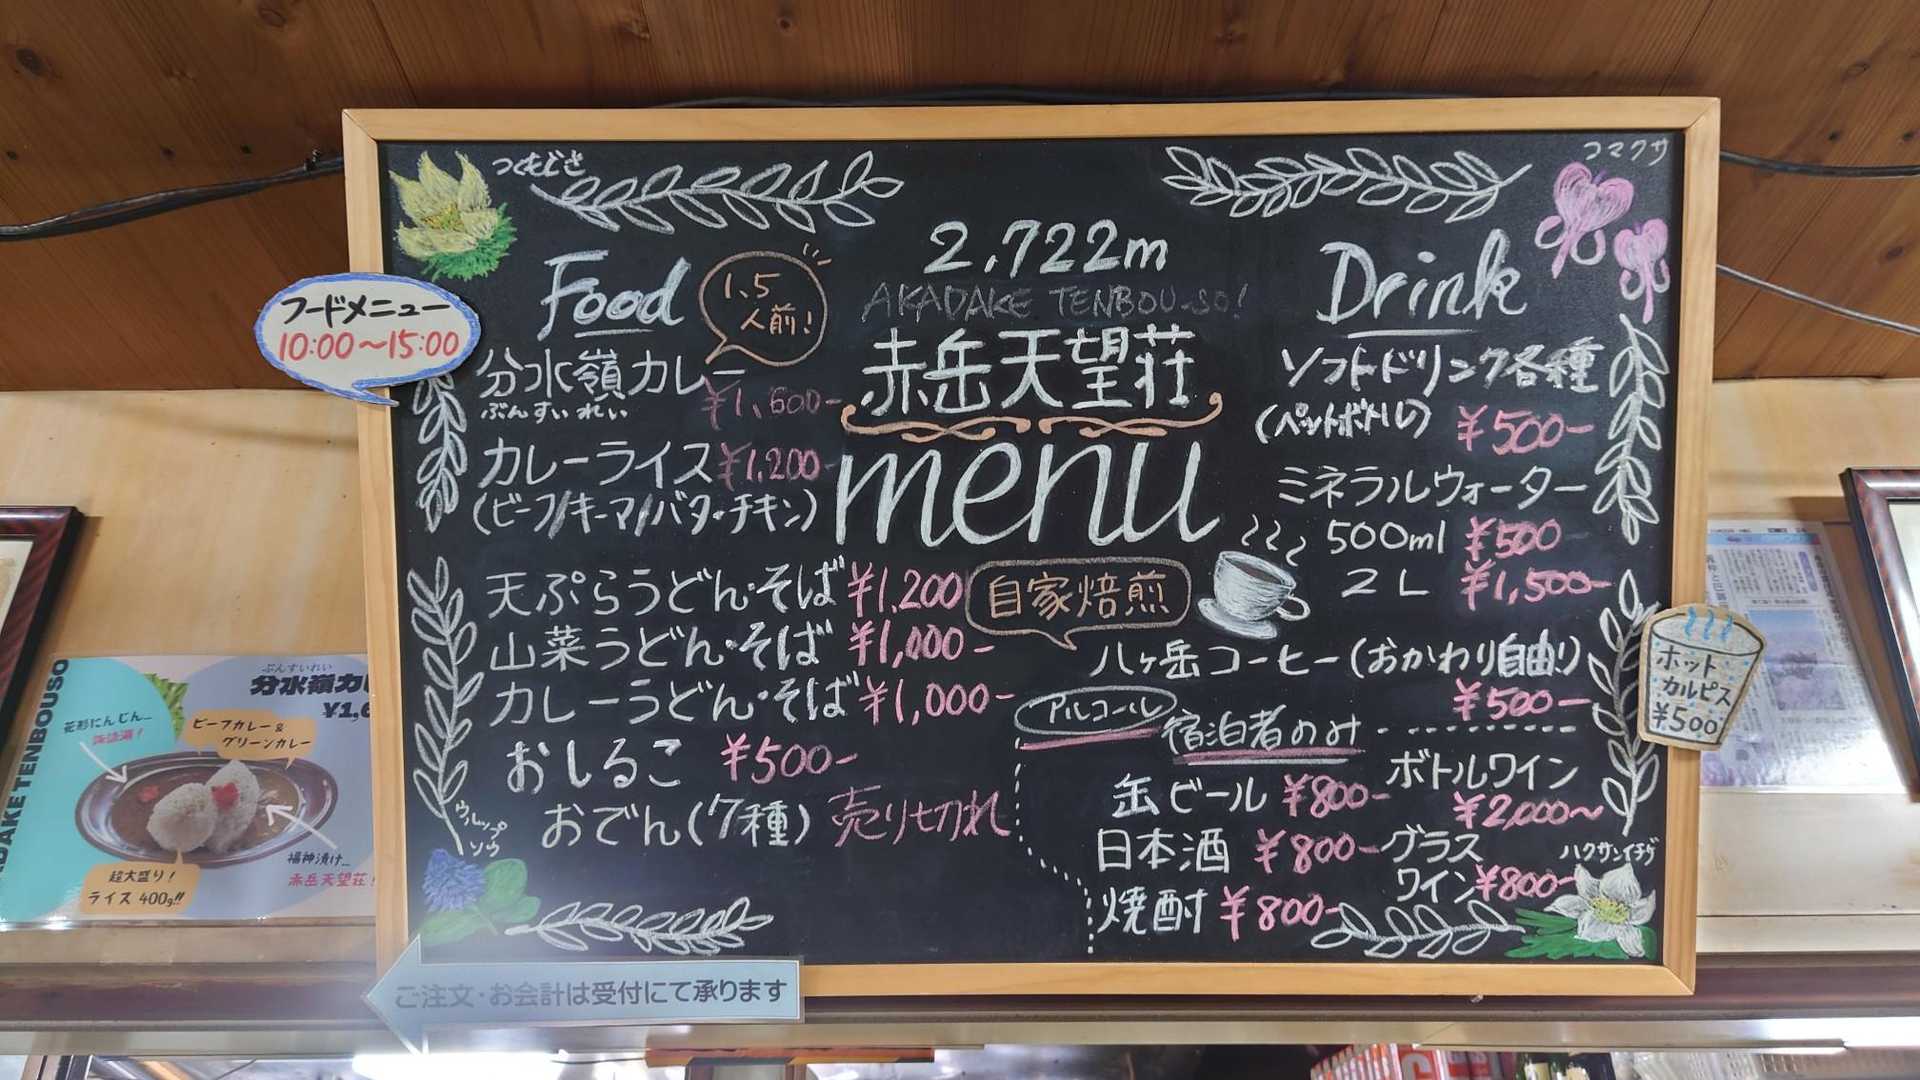 つくもぐさ
コマクサ
フードメニュー
10:00～15:00
Food
1.5
人前!
分水嶺カレー
ぶんすいれい
¥1,600-
カレーライス ¥1,200-
(ビーフ/キーマ/バターチキン)
天ぷらうどん・そば ¥1,200
山菜うどん・そば ¥1,000-
カレーうどん・そば ¥1,000-
おしるこ ¥500-
おでん(7種) 売り切れ
ウルップ
ソウ
2,722m
AKADAKE TENBOU-SO!
赤岳天望荘
menu
Drink
ソフトドリンク各種
(ペットボトル) ¥500-
ミネラルウォーター
500ml ¥500
2L ¥1,500-
自家焙煎
八ヶ岳コーヒー(おかわり自由!)
¥500-
ホット
カルピス
¥500
アルコール
宿泊者のみ
缶ビール ¥800-
日本酒 ¥800-
焼酎 ¥800-
ボトルワイン
¥2,000～
グラス
ワイン ¥800-
ハクサンイチゲ
ご注文・お会計は受付にて承ります
ぶんすいれい
分水嶺カ
¥1,6
花形にんじん…
ビーフカレー＆
グリーンカレー
超大盛り!
ライス 400g!!
福神漬け…
赤岳天望荘!
ADAKE TENBOUSO